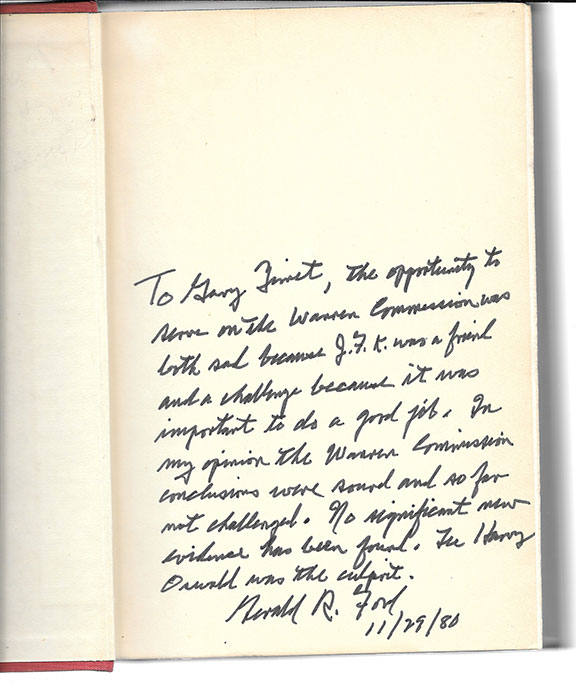 To Gary Zimet, the opportunity to
serve on the Warren Commission was
both sad because J.F.K. was a friend
and a challenge because it was
important to do a good job. In
my opinion the Warren Commission
conclusions were sound and so far
not challenged. No significant new
evidence has been found. Lee Harvey
Oswald was the culprit.
Gerald R. Ford
11/29/80